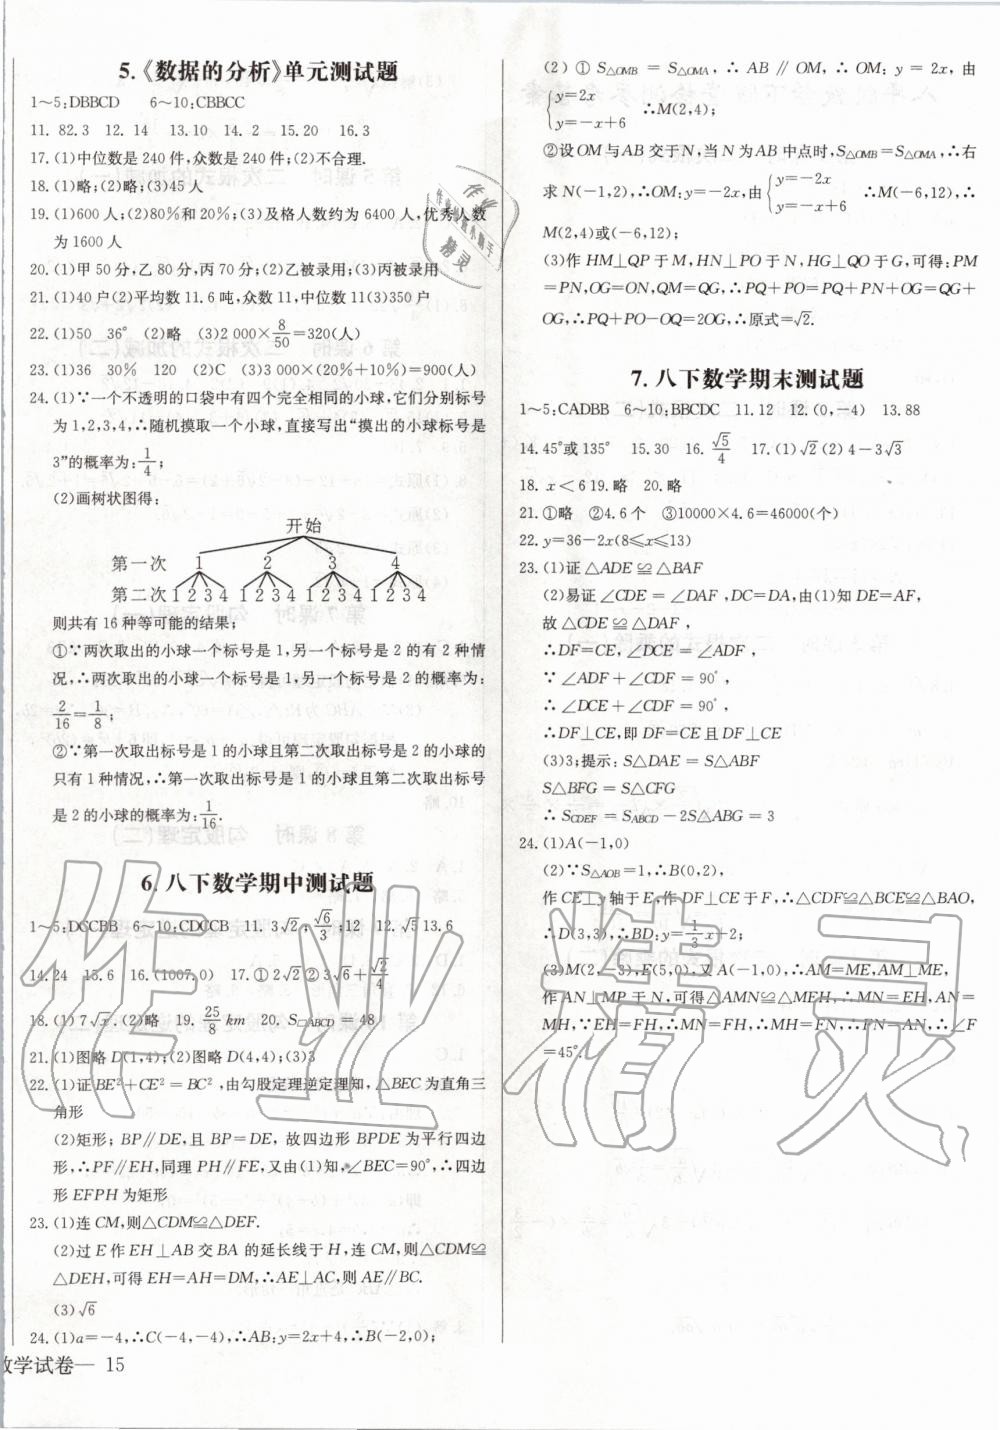 5.《数据的分析》单元测试题
1～5:DBBCD　6～10:CBBCC
11. 82.3　12. 14　13.10　14. 2　15.20　16.3
17.(1)中位数是 240 件,众数是 240 件;(2)不合理.
18.(1)略;(2)略;(3)45 人
19.(1)600人;(2)80%和 20%;(3)及格人数约为 6400 人,优秀人数
为 1600 人
20.(1)甲 50 分,乙 80 分,丙 70 分;(2)乙被录用;(3)丙被录用
21.(1)40 户(2)平均数 11.6 吨,众数 11,中位数 11(3)350 户
22.(1)50　36°　(2)略　(3)2 000×8/50=320(人)
23.(1)36　30%　120　(2)C　(3)3 000×(20%+10%)=900(人)
24.(1)∵一个不透明的口袋中有四个完全相同的小球,它们分别标号
为 1,2,3,4,∴随机摸取一个小球,直接写出“摸出的小球标号是
3”的概率为:1/4;
(2)画树状图得:
开始
第一次　1　2　3　4
第二次　1 2 3 4　1 2 3 4　1 2 3 4　1 2 3 4
则共有 16 种等可能的结果;
①∵两次取出的小球一个标号是 1,另一个标号是 2 的有 2 种情
况,∴两次取出的小球一个标号是 1,另一个标号是 2 的概率为:
2/16=1/8;
②∵第一次取出标号是 1 的小球且第二次取出标号是 2 的小球的
只有 1 种情况,∴第一次取出标号是 1 的小球且第二次取出标号
是 2 的小球的概率为:1/16.
6. 八下数学期中测试题
1～5:DCCBB　6～10:CDCCB　11. 3√2;√6/3;12　12. √5 13.6
14. 24　15.6　16.(1007,0)　17.① 2√2 ② 3√6+√2/4
18.(1) 7√x.(2)略　19. 25/8 km　20. S□ABCD = 48
21.(1)图略D(1,4);(2)图略 D(4,4);(3)3
22.(1)证BE²+CE²=BC²,由勾股定理逆定理知,△BEC为直角三
角形
(2)矩形; BP∥DE,且 BP=DE, 故四边形 BPDE 为平行四边
形,∴PF∥EH,同理 PH∥FE,又由(1)知,∠BEC=90°,∴四边
形 EFPH 为矩形
23.(1)连 CM,则△CDM≌△DEF.
(2)过 E 作 EH⊥AB 交 BA 的延长线于 H,连 CM,则△CDM≌
△DEH,可得 EH=AH=DM,∴AE⊥AC,则 AE∥BC.
(3)√6
24.(1)a=-4,∴C(-4,-4),∴AB:y=2x+4,∴B(-2,0);
数学试卷— 15
(2) ① S△OMB = S△OMA,∴ AB ∥ OM,∴ OM: y = 2x, 由
{y=2x
y=-x+6　∴M(2,4);
②设OM与AB交于N,当 N 为 AB 中点时,S△OMB=S△OMA,∴右
求 N(-1,2),∴OM:y=-2x,由{y=-2x
y=-x+6　∴M(-6,12),∴
M(2,4)或(-6,12);
(3)作 HM⊥QP于M,HN⊥PO于N,HG⊥QO于G,可得:PM
=PN,OG=ON,QM=QG,∴PQ+PO=PQ+PN+OG=QG+
OG,∴PQ+PO-OQ=2OG,∴原式=√2.
7. 八下数学期末测试题
1～5:CADBB　6～10:BBCDC　11.12　12.(0,-4)　13.88
14.45°或135°　15.30　16. √5/4　17.(1)√2 (2) 4-3√3
18. x<6 19.略　20.略
21.①略　②4.6 个　③10000×4.6=46000(个)
22. y=36-2x(8≤x≤13)
23.(1)证△ADE≌△BAF
(2)易证∠CDE=∠DAF,DC=DA,由(1)知 DE=AF,
故△CDE≌△DAF,
∴DF=CE,∠DCE=∠ADF,
∵∠ADF+∠CDF=90°,
∴∠DCE+∠CDF=90°,
∴DF⊥CE,即 DF=CE 且 DF⊥CE
(3)3;提示:S△DAE=S△ABF
S△BFG=S△CFG
∴ SCDEF=SABCD-2S△ABG=3
24.(1)A(-1,0)
(2)∵S△AOB=1,∴B(0,2),
作 CE⊥y轴于 E,作 DF⊥CE 于 F,∴△CDF≌△BCE≌△BAO,
∴D(3,3),∴BD:y=1/3x+2;
(3)M(2,-3),E(5,0),又 A(-1,0),∴AM=ME,AM⊥ME,
作 AN⊥MP 于 N,可得△AMN≌△MEH,∴MN=EH,AN=
MH,∵EH=FH,∴MN=FH,∴MH=FN,∴FN=AN,∴∠F
=45°.
作业精灵